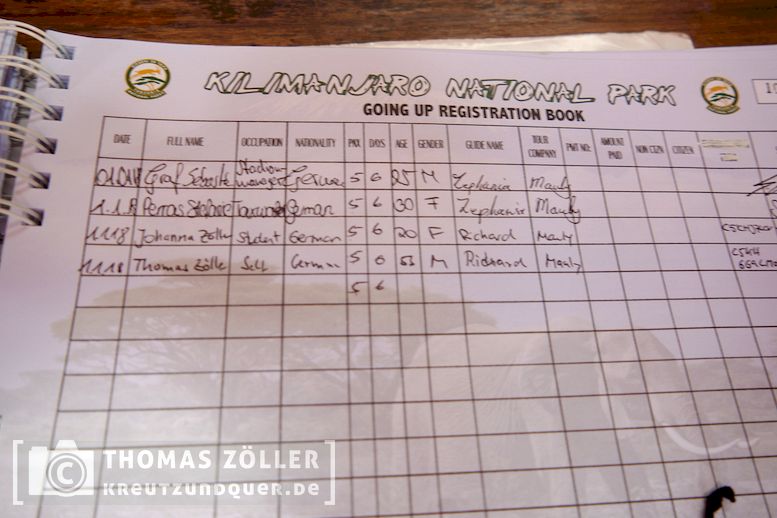 KILIMANJARO NATIONAL PARK
GOING UP REGISTRATION BOOK
DATE FULL NAME OCCUPATION NATIONALITY PAX DAYS AGE GENDER GUIDE NAME TOUR COMPANY PMT NO: AMOUNT PAID NON CIZN CITIZEN
Graf Stadion manager 5 6 25 M Zephania Mauly
1.1.18 Perras German 5 6 30 F Zephania Mauly
1.1.18 Johanna Zöller Student German 5 6 20 F Richard Mauly
1.1.18 Thomas Zöller Self German 5 6 53 M Richard Mauly
5 6
© THOMAS ZÖLLER
KREUTZUNDQUER.DE